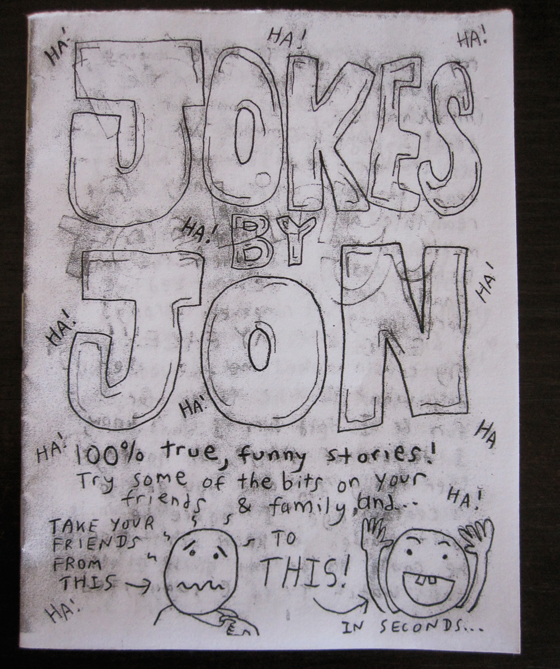 HA! HA! HA!
JOKES
HA! BY
JON
HA!
HA!
HA!
HA
HA! 100% true, funny stories!
Try some of the bits on your
friends & family, and...
HA!
TAKE YOUR
FRIENDS
FROM
THIS
TO
THIS!
HA!
IN SECONDS...